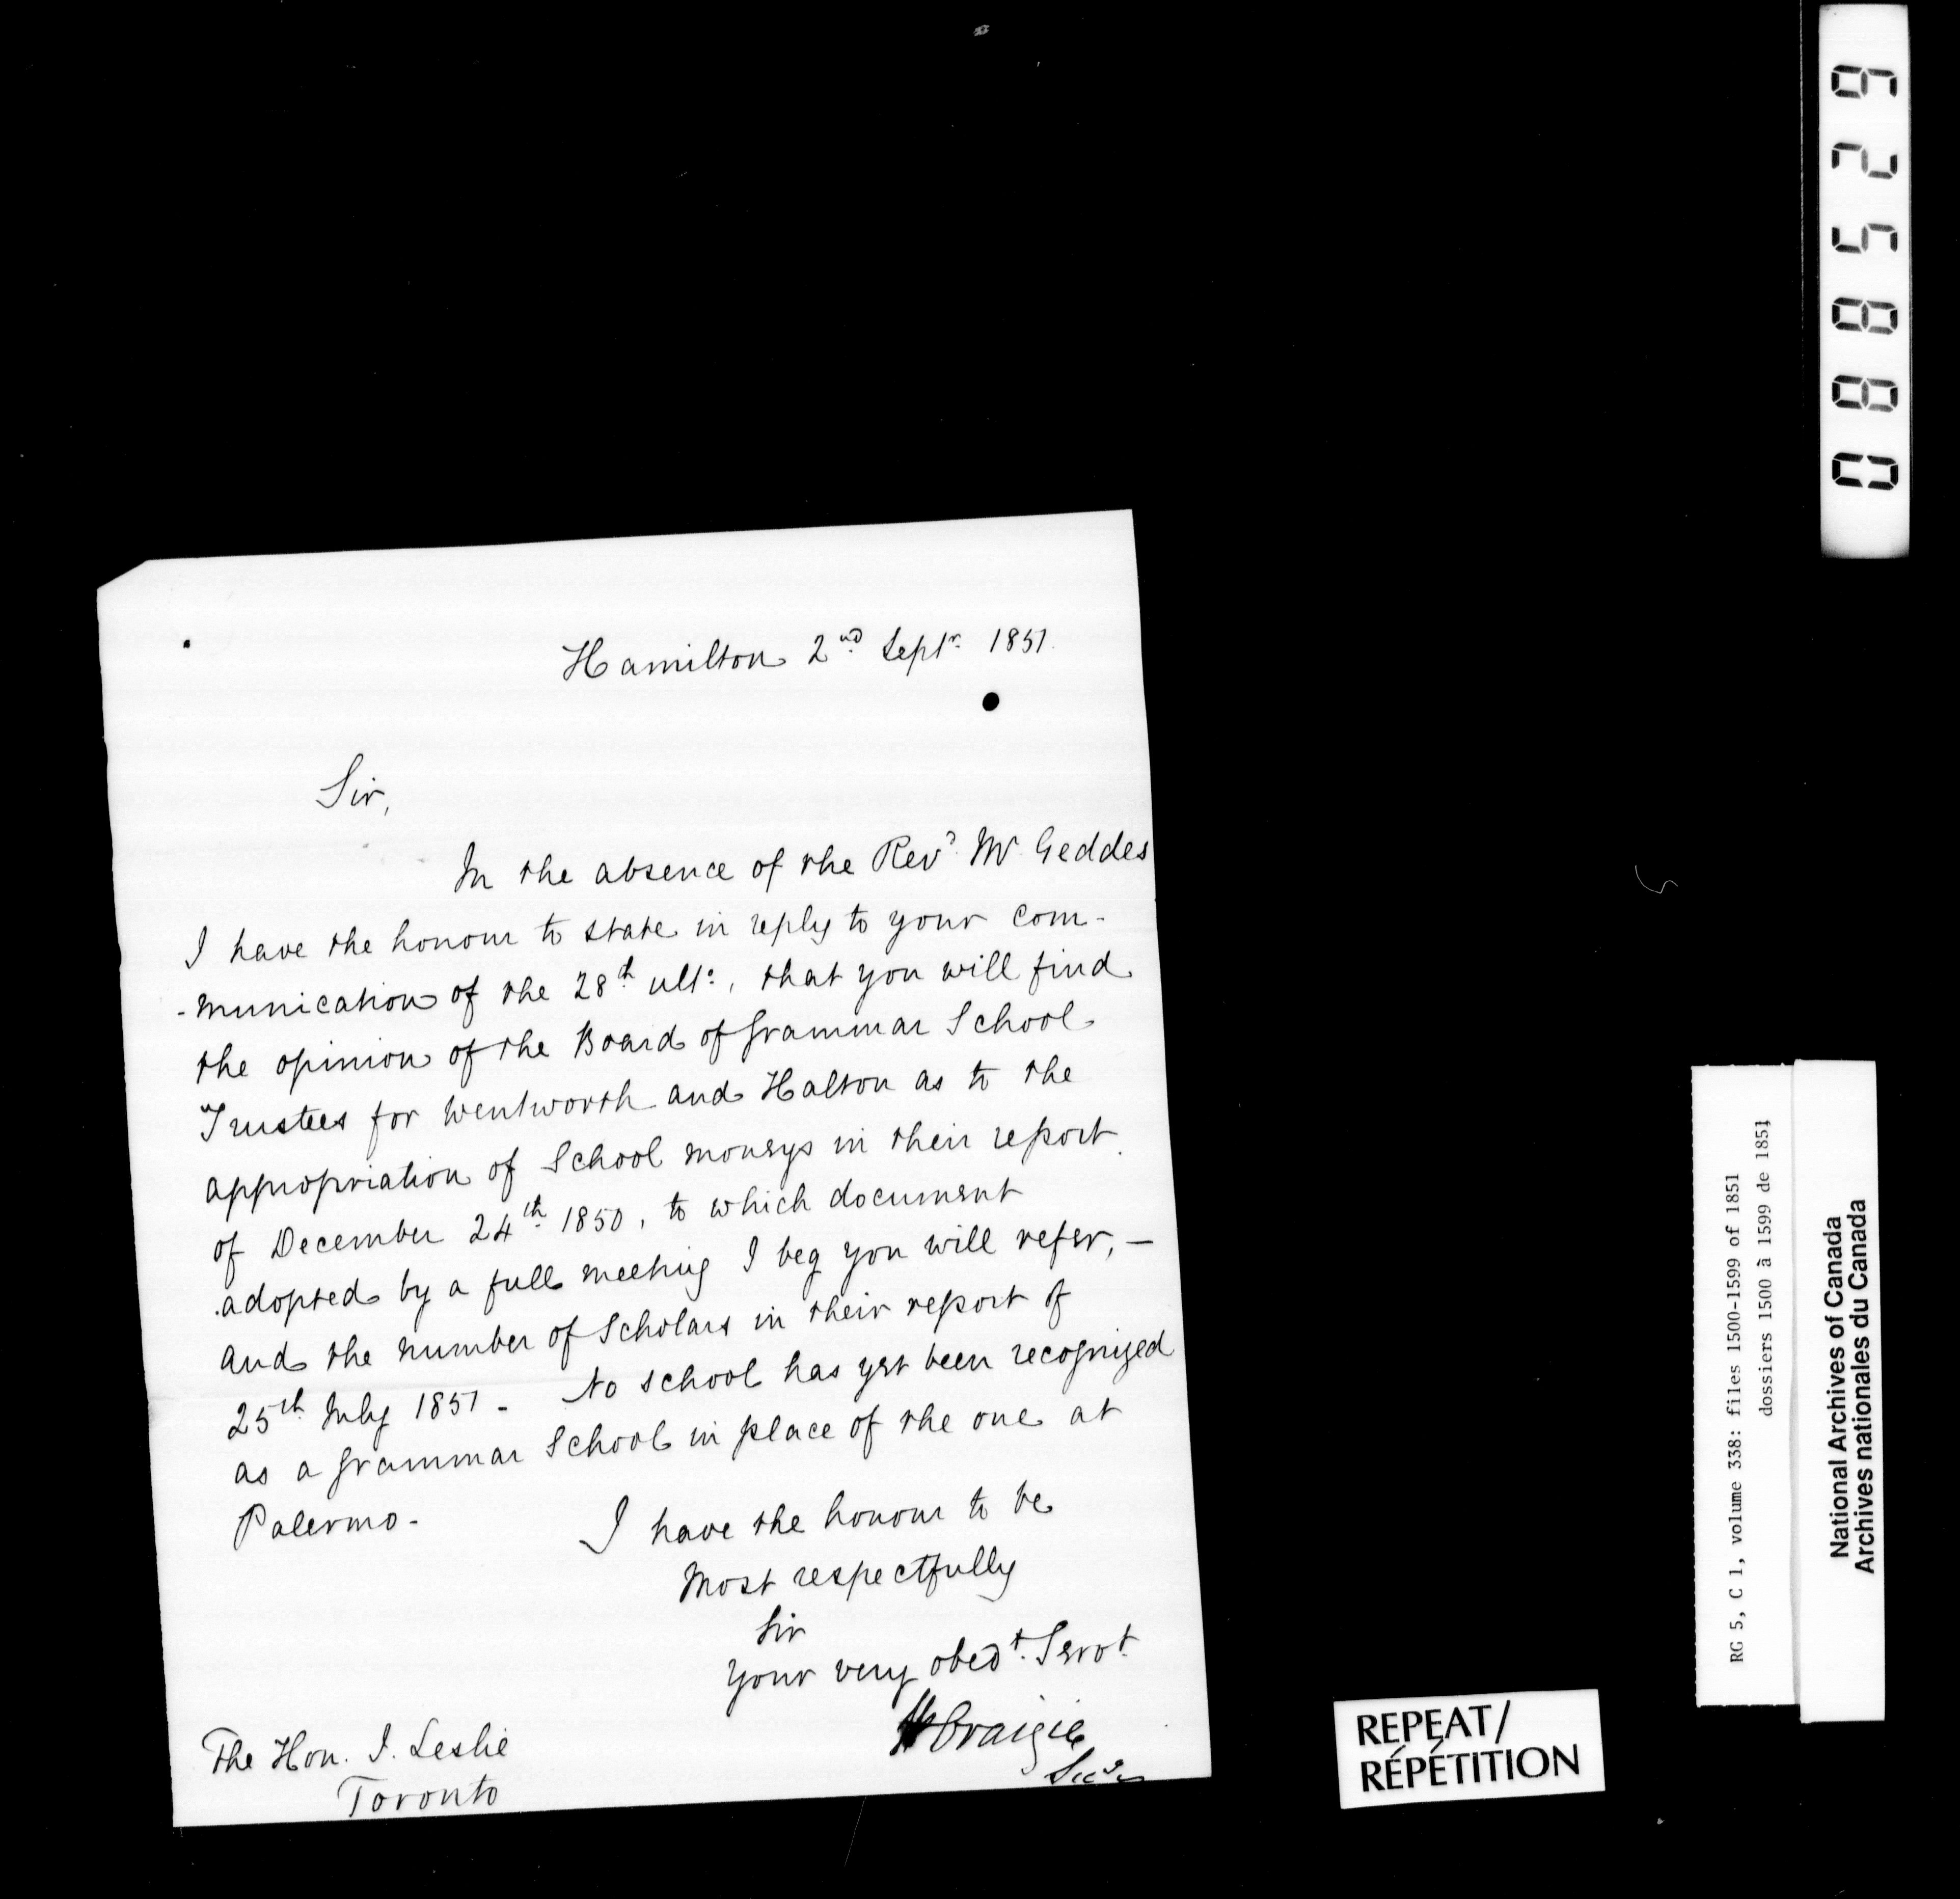 Hamilton 2nd Septr. 1851.
Sir,
In the absence of the Revd. Mr. Geddes
I have the honour to state in reply to your com-
-munication of the 28th ulto:, that you will find
the opinion of the Board of Grammar School
Trustees for Wentworth and Halton as to the
appropriation of School moneys in their report
of December 24th. 1850, to which document
adopted by a full meeting I beg you will refer, —
and the number of Scholars in their report of
25th July 1851 - No school has yet been recognized
as a Grammar School in place of the one at
Palermo -
I have the honour to be
Most respectfully
Sir
your very obedt. Servt.
W Craigie
Secy
The Hon. J. Leslie
Toronto
088529
RG 5, C 1, volume 338: files 1500-1599 of 1851
dossiers 1500 à 1599 de 1851
National Archives of Canada
Archives nationales du Canada
REPEAT/
RÉPÉTITION